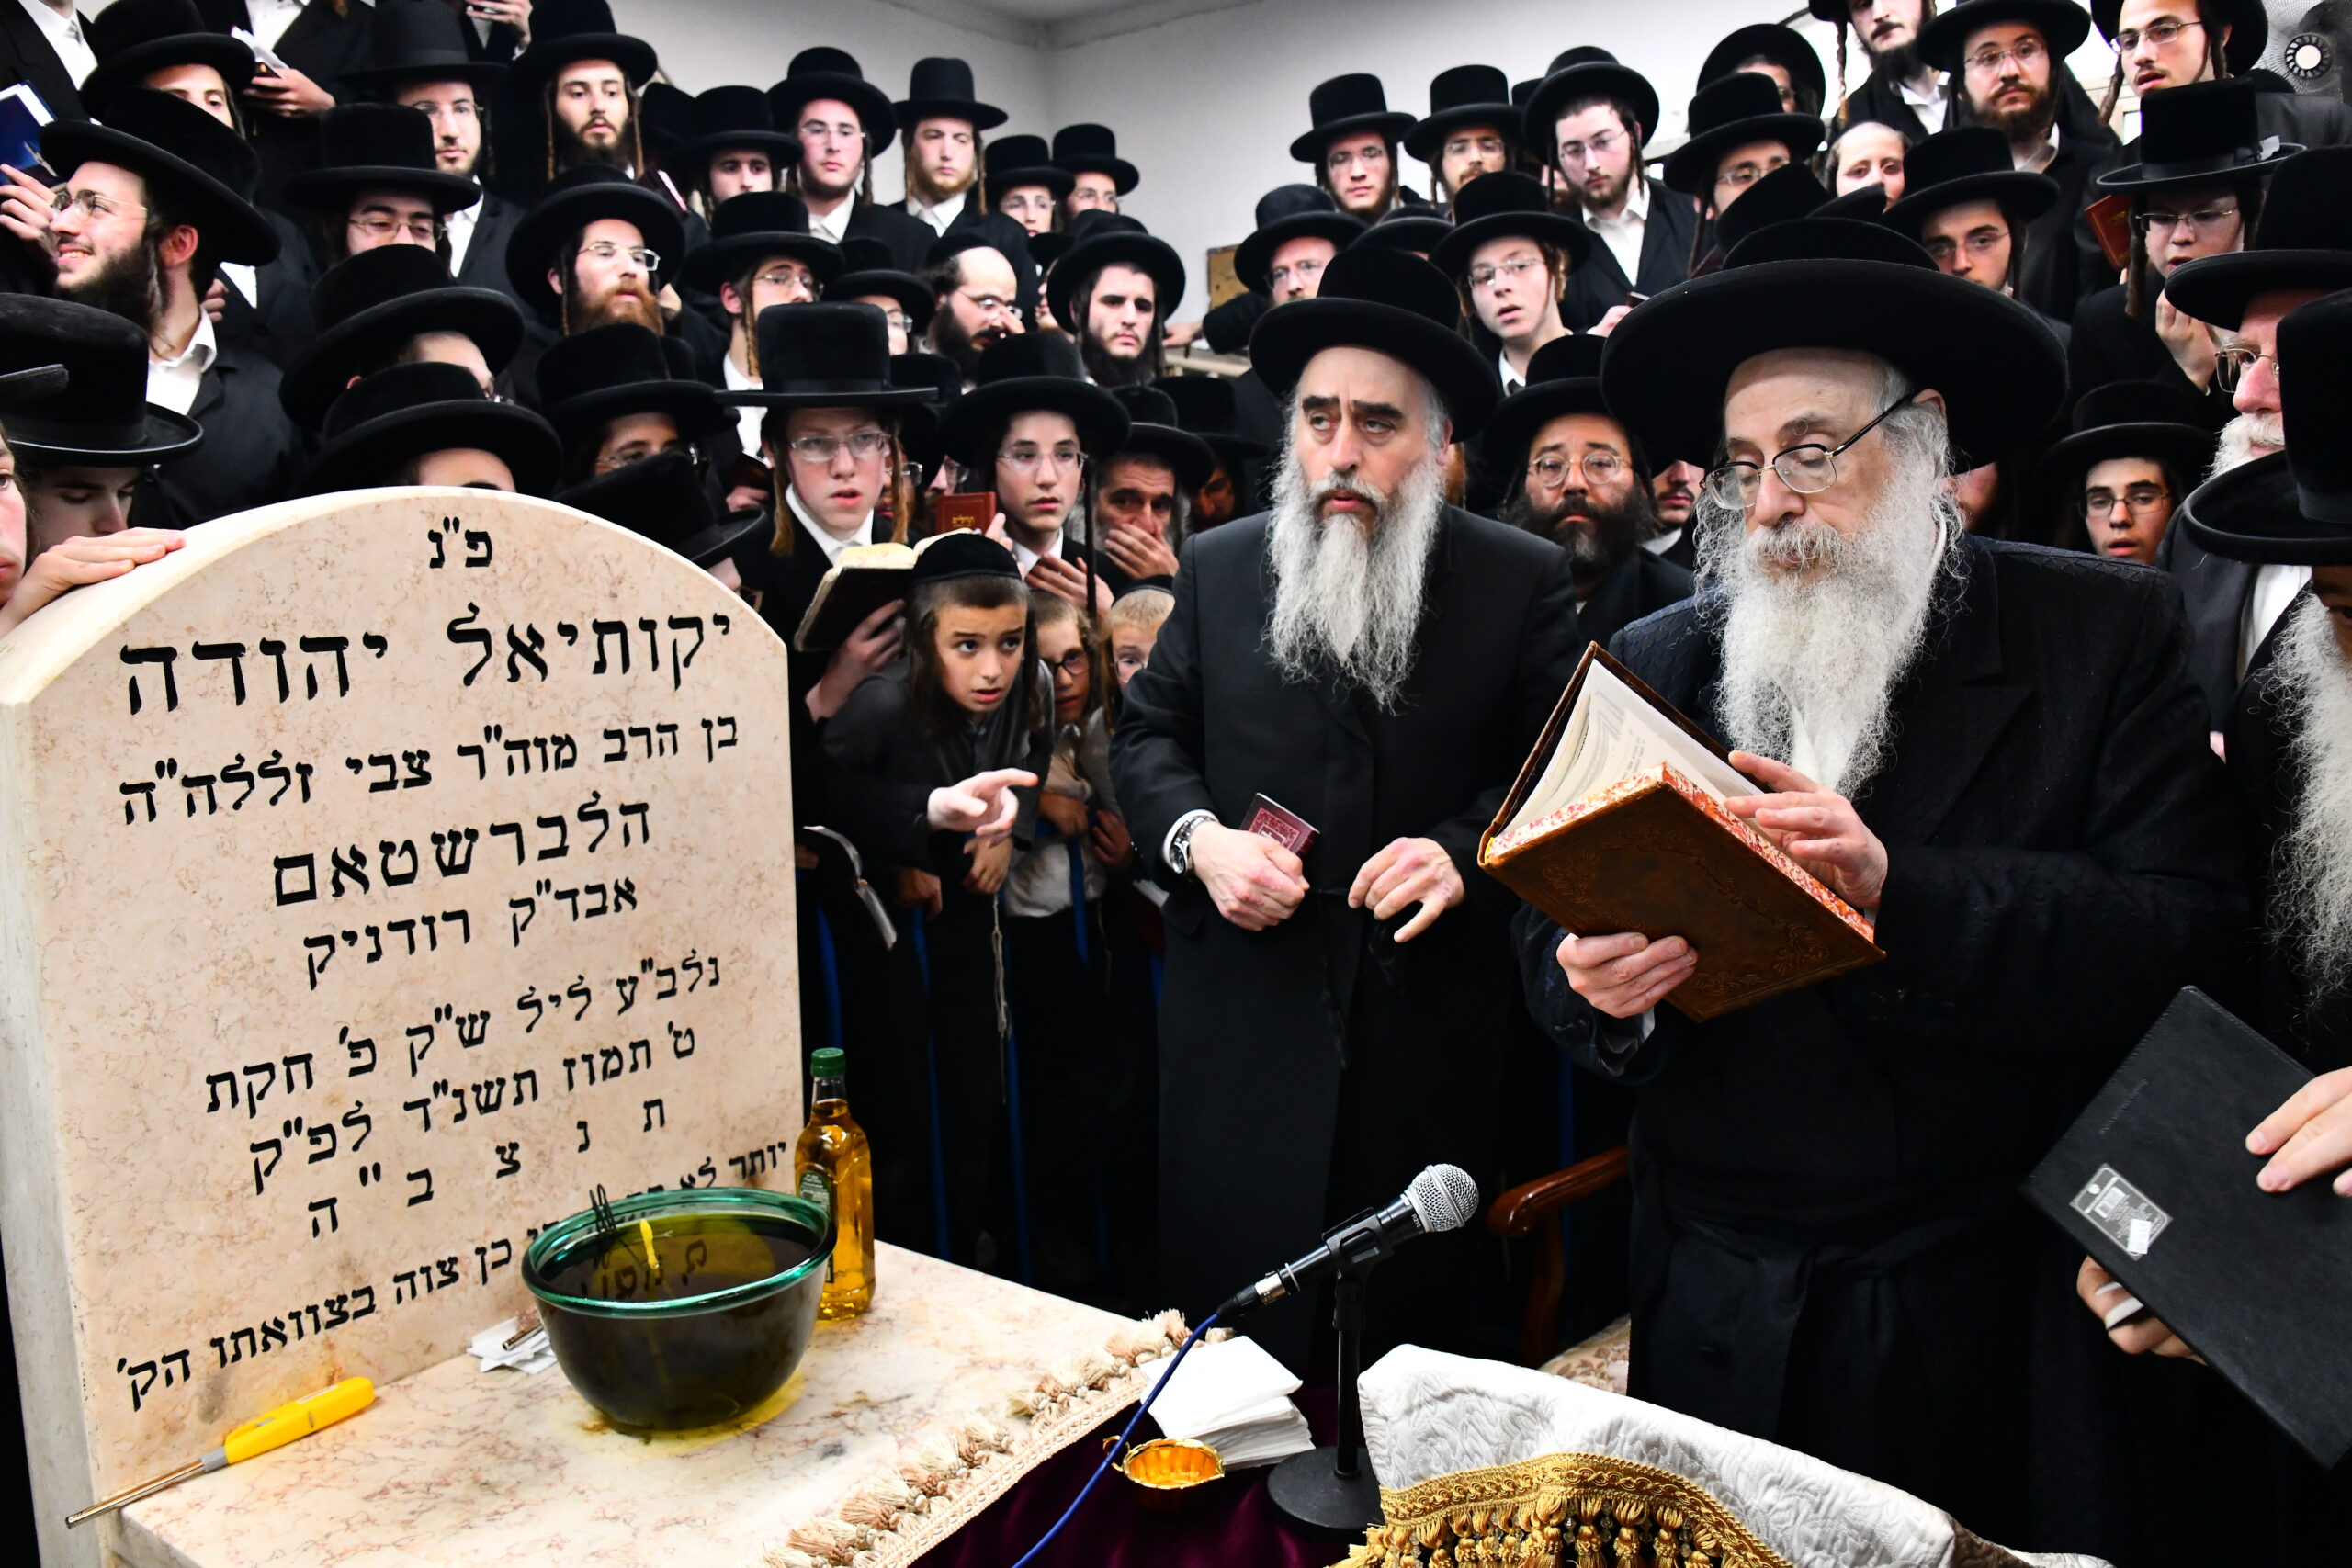 פ"נ
יקותיאל יהודה
בן הרב מוה"ר צבי זללה"ה
הלברשטאם
אבד"ק רודניק
נלב"ע ליל ש"ק פ' חקת
ט' תמוז תשנ"ד לפ"ק
ת נ צ ב "ה
יותר לא
כן צוה בצוואתו הק'